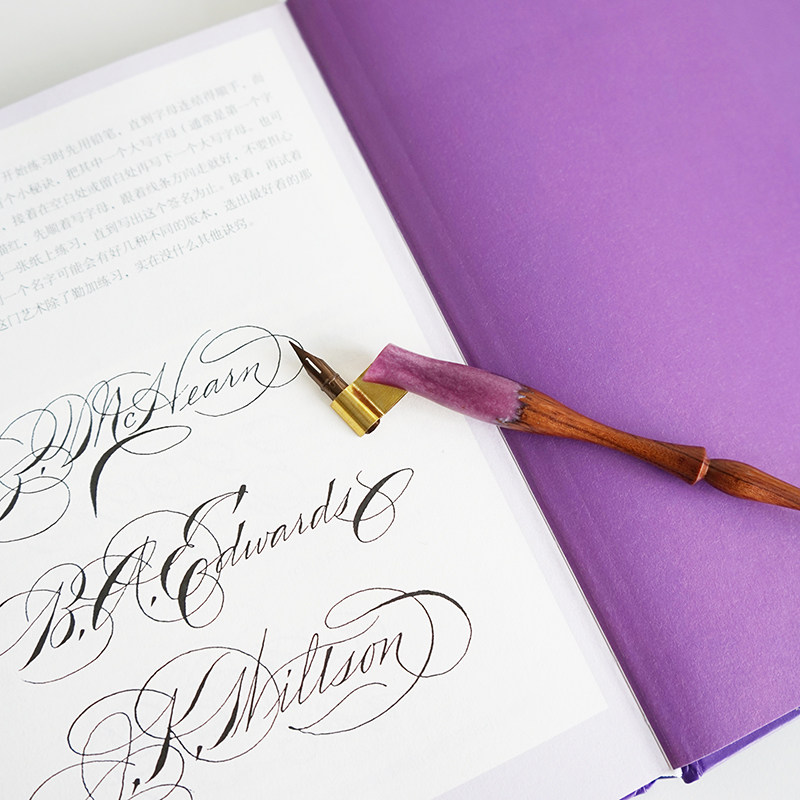 开始练习时先用铅笔，直到字母连结得顺手，而
个小秘诀，把其中一个大写字母（通常是第一个字
，接着在空白处或留白处再写下一个大写字母。也可
描红，先顺着写字母，跟着线条方向走就好，不要担心
一张纸上练习，直到写出这个签名为止。接着，再试着
一个名字可能会有好几种不同的版本，选出最好看的那
这门艺术除了勤加练习，实在没什么其他诀窍。
McHearn
B. A. Edwards
J. K. Willson